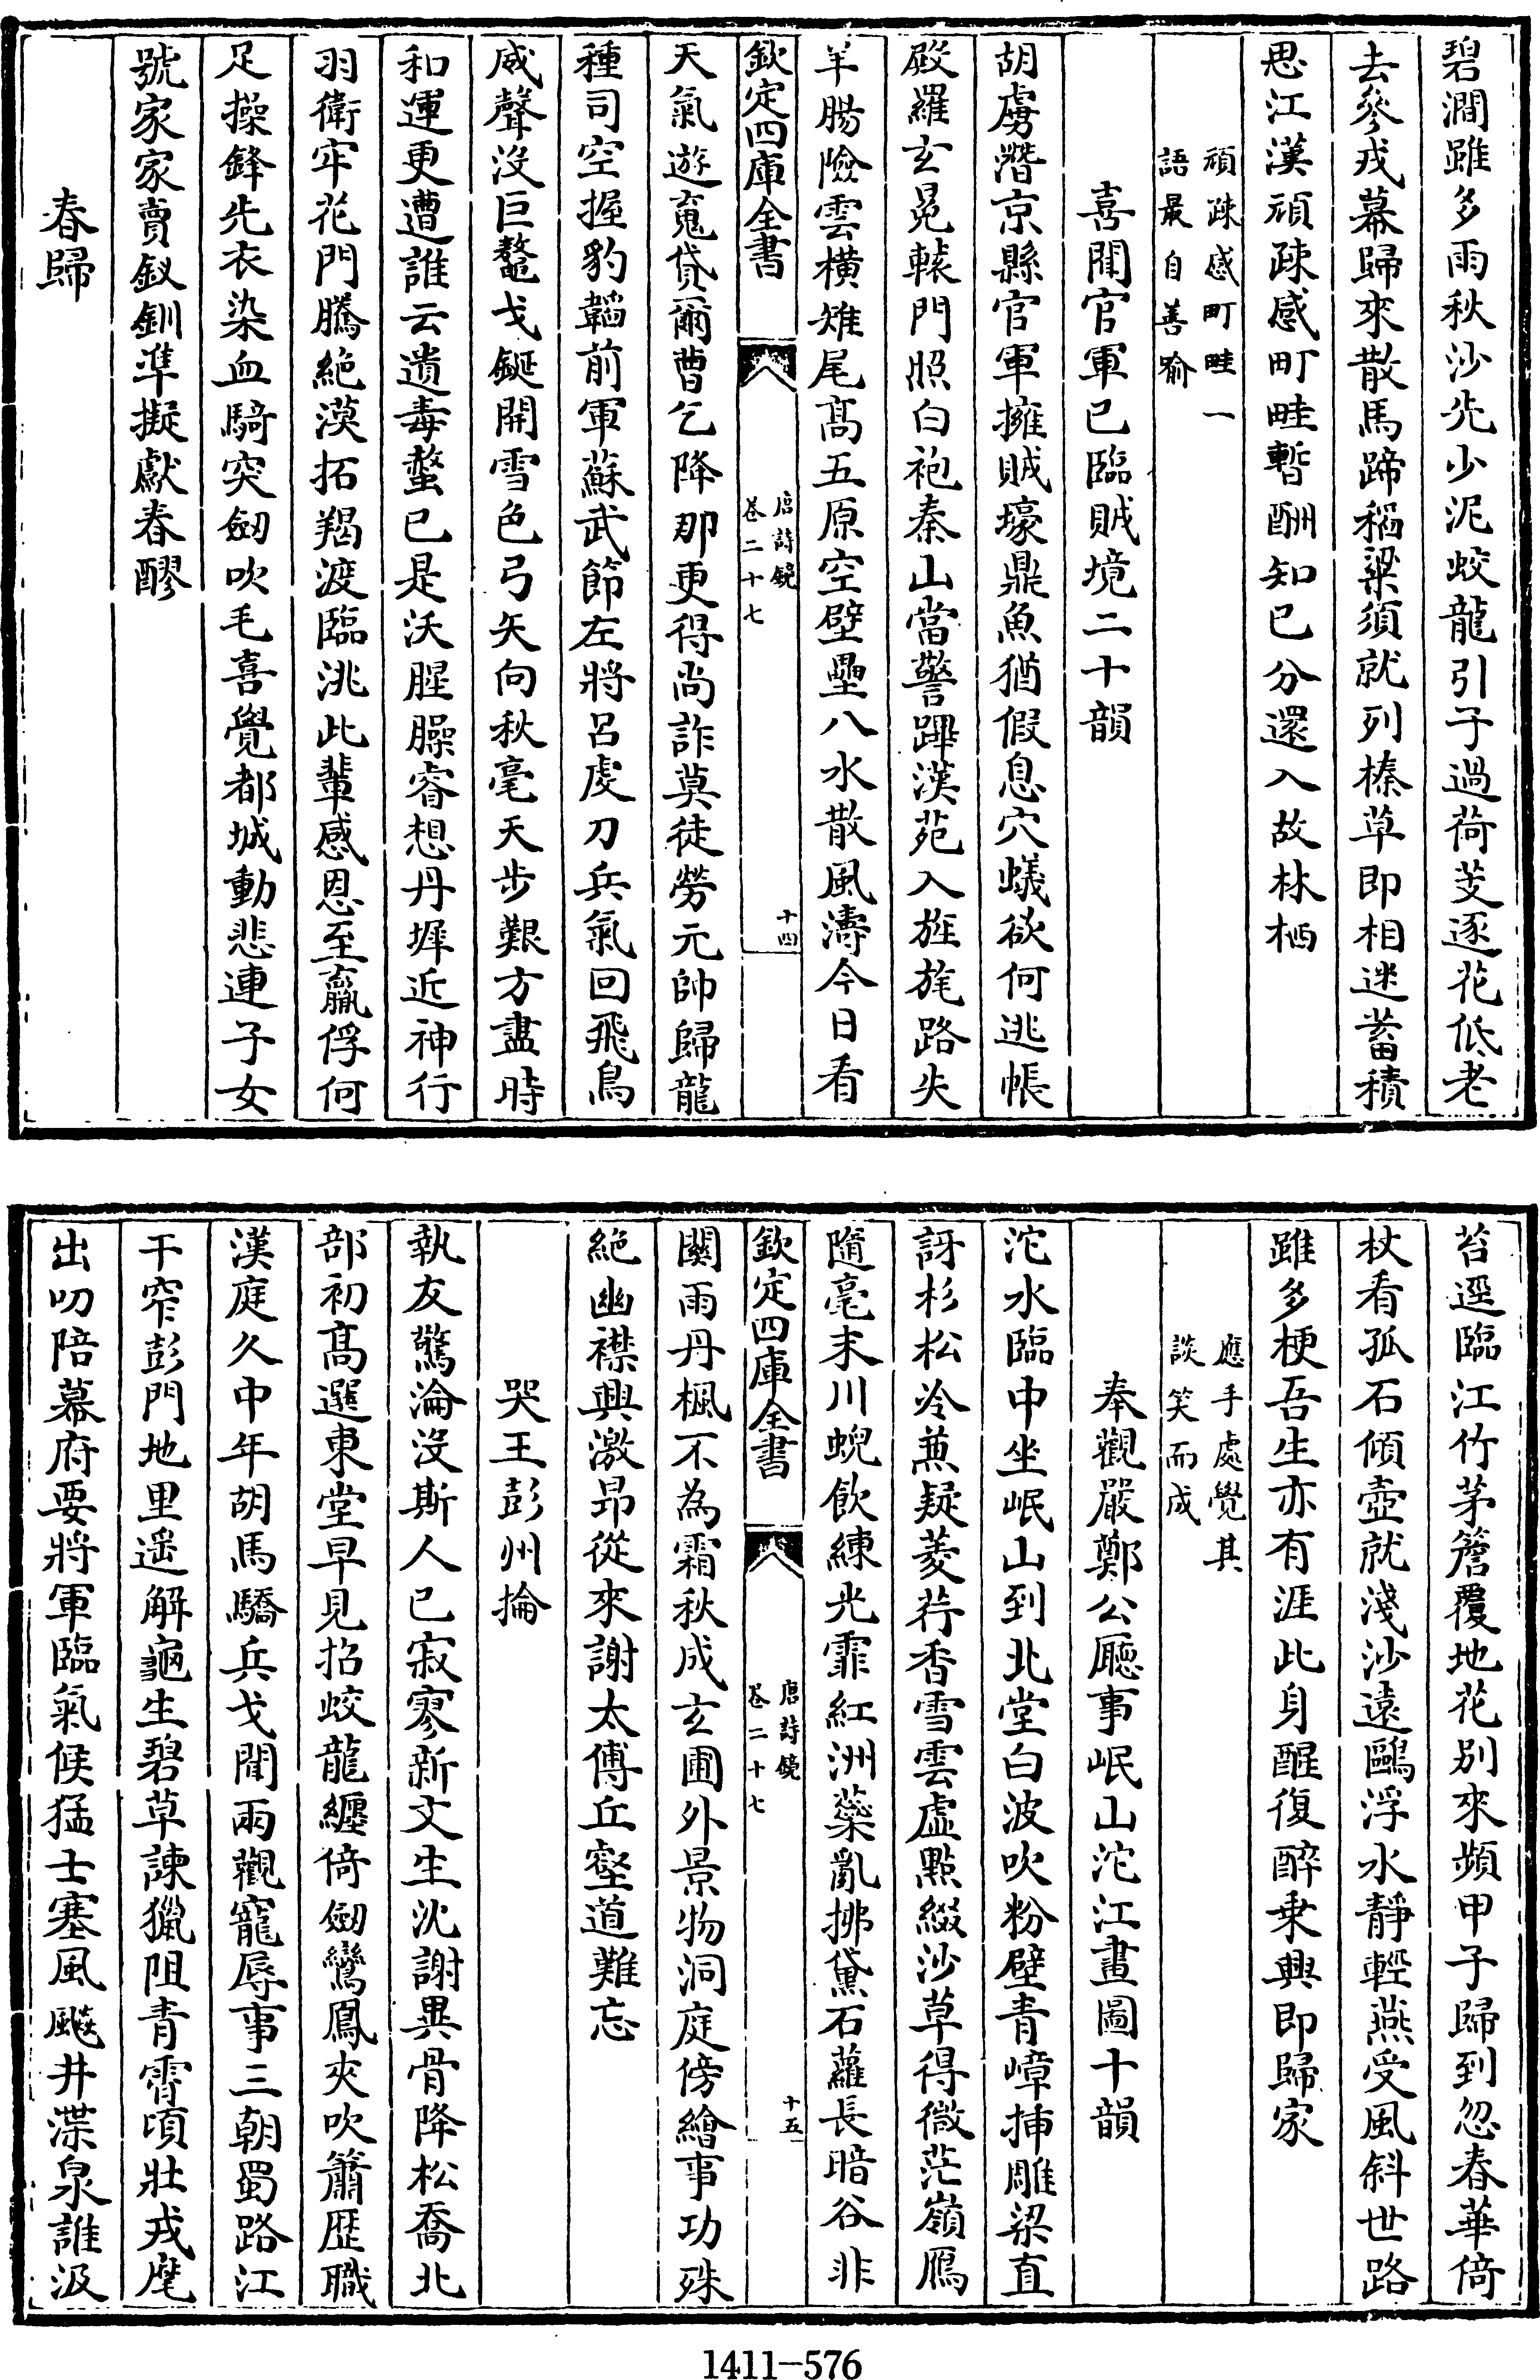 碧澗雖多雨秋沙先少泥蛟龍引子過荷芰逐花低老
去參戎幕歸來散馬蹄稻粱須就列榛草即相迷蓄積
思江漢頑疎感町畦暫酬知已分還入故林栖
頑疎感町畦一
語最自善喻
喜聞官軍已臨賊境二十韻
胡虜潛京縣官軍擁賊壕鼎魚猶假息穴蟻欲何逃帳
殿羅玄冕轅門照白袍秦山當警蹕漢苑入旌旄路失
羊腸險雲橫雉尾髙五原空壁壘八水散風濤今日看
欽定四庫全書
唐詩鏡
卷二十七
十四
天氣遊蒐貸爾曹乞降那更得尚詐莫徒勞元帥歸龍
種司空握豹韜前軍蘇武節左將呂虔刀兵氣回飛鳥
威聲沒巨鼇戈鋋開雪色弓矢向秋毫天步艱方盡時
和運更遭誰云遺毒螫已是沃腥臊睿想丹墀近神行
羽衛牢花門騰絶漠拓羯渡臨洮此輩感恩至羸俘何
足操鋒先衣染血騎突劒吹毛喜覺都城動悲連子女
號家家賣釵釧準擬獻春醪
春歸
苔逕臨江竹茅簷覆地花别來頻甲子歸到忽春華倚
杖看孤石傾壺就淺沙遠鷗浮水靜輕燕受風斜世路
雖多梗吾生亦有涯此身醒復醉乗興即歸家
應手處覺其
談笑而成
奉觀嚴鄭公廳事岷山沱江畫圖十韻
沱水臨中坐岷山到北堂白波吹粉壁青嶂揷雕梁直
訝杉松冷兼疑菱荇香雪雲虛點綴沙草得微茫嶺鴈
隨毫末川蜺飲練光霏紅洲蘂亂拂黛石蘿長暗谷非
欽定四庫全書
唐詩鏡
卷二十七
十五
闗雨丹楓不為霜秋成玄圃外景物洞庭傍繪事功殊
絶幽襟興激昂從來謝太傅丘壑道難忘
哭王彭州掄
執友驚淪沒斯人已寂寥新文生沈謝異骨降松喬北
部初髙選東堂早見招蛟龍纒倚劒鸞鳳夾吹簫歴職
漢庭久中年胡馬驕兵戈聞兩觀寵辱事三朝蜀路江
干窄彭門地里遥解龜生碧草諫獵阻青霄頃壯戎麾
出叨陪幕府要將軍臨氣候猛士塞風飈井渫泉誰汲
1411—576